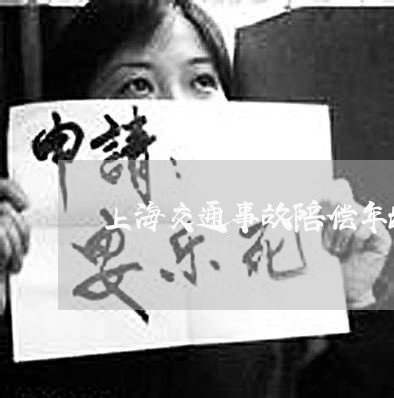 申請：
上海交通事故陪偿年
安乐死